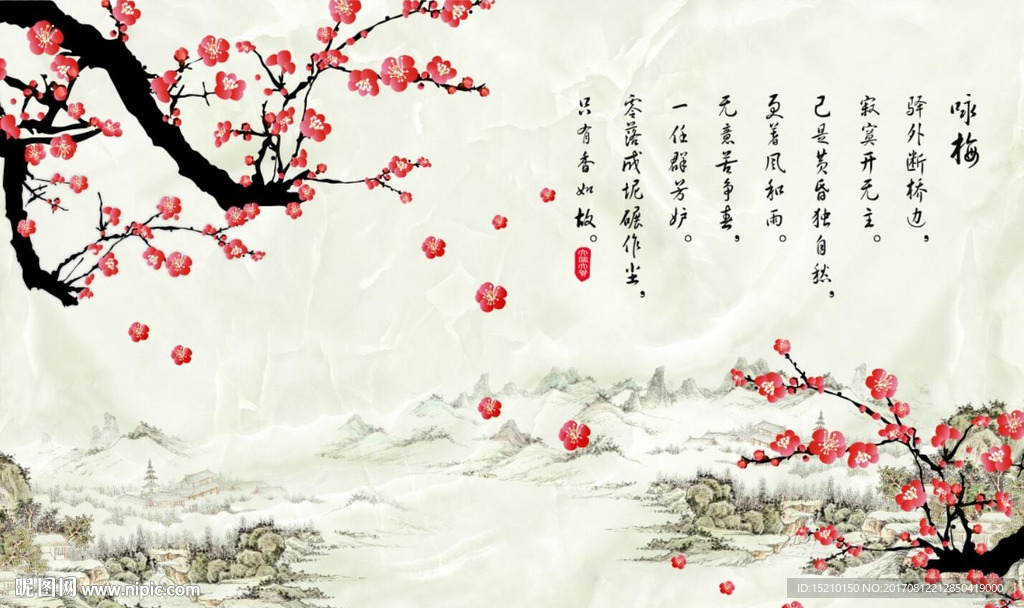 咏梅
驿外断桥边，
寂寞开无主。
已是黄昏独自愁，
更着风和雨。
无意苦争春，
一任群芳妒。
零落成坭碾作尘，
只有香如故。
昵图网 www.nipic.com
ID:15210150 NO:20170812212850419000